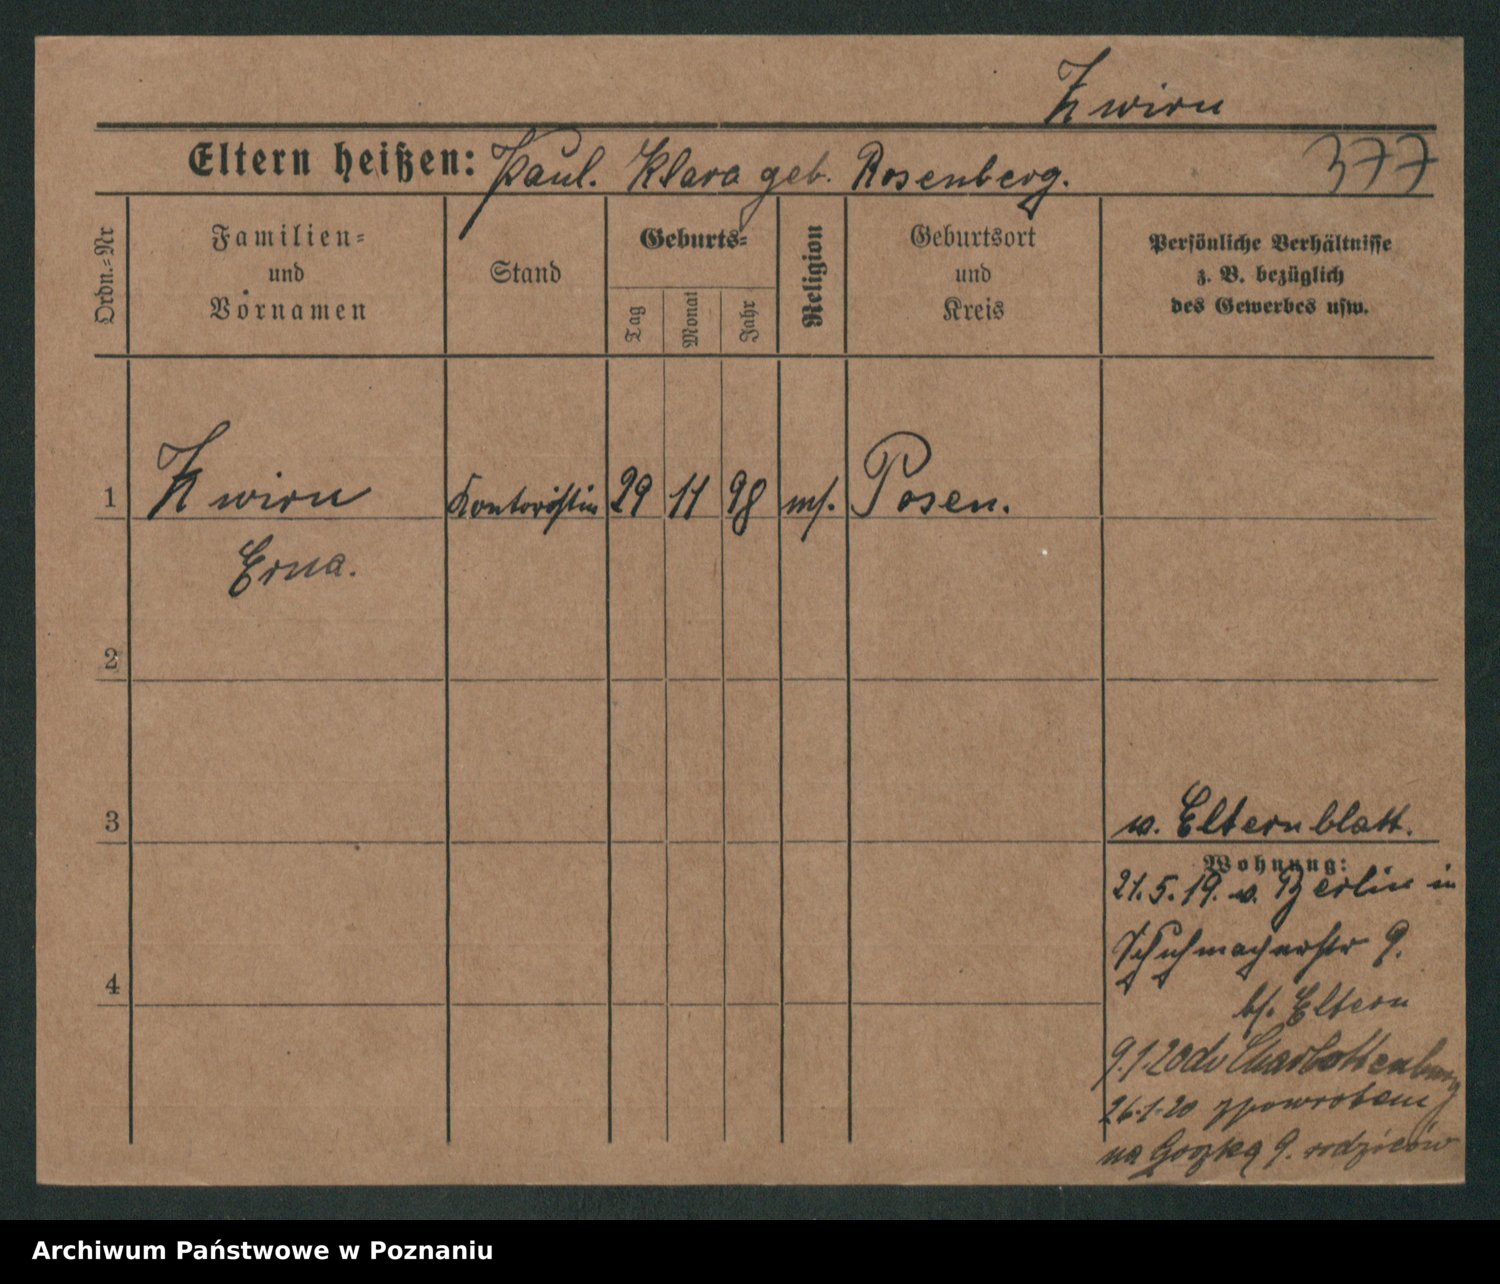 Zwirn
Eltern heißen: Paul. Klara geb. Rosenberg.
377
Ordn.-Nr
Familien-
und
Vornamen
Stand
Geburts-
Tag
Monat
Jahr
Religion
Geburtsort
und
Kreis
Persönliche Verhältnisse
z. B. bezüglich
des Gewerbes usw.
1 Zwirn Kontoristin 29 11 98 mos. Posen.
Erna.
2
3
v. Elternblatt.
Wohnung:
21.5.19. v. Berlin in
Schuhmacherstr 9.
4
bs. Eltern
9.1.20 do Charlottenburg
26.1.20 zpowrotem
na 9. rodziców
Archiwum Państwowe w Poznaniu